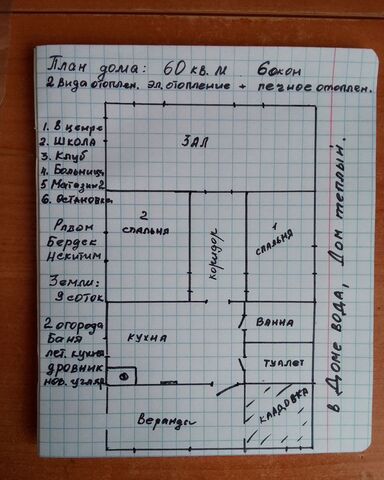 План дома: 60 кв. м 6 окон
2 вида отоплен. эл. отопление + печное отоплен.
1. В центре
2. Школа
3. Клуб
4. Больница
5 Магазин 2
6. Остановка
Рядом
Бердск
Искитим
Земли:
9 соток
2 огорода
Баня
лет. кухня
дровник
нов. угляр
ЗАЛ
2
спальня
коридор
1
спальня
кухня
ВАННА
ТУАЛЕТ
Веранда
КЛАДОВКА
в Доме вода, Дом теплый.